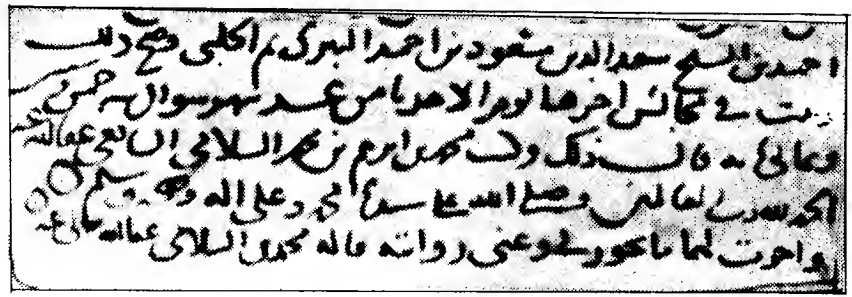 احمد بن الشيخ سعد الدين مسعود بن احمد البدري ثم الحلبي وصح ذلك
وثبت في مجالس اخرها يوم الاحد ثامن عشر شهر شوال سنة خمس
قال ذلك وكتب محمد بن ابرهيم بن محمد السلامي الشافعي عفا الله عنه
الحمد لله رب العالمين وصلى الله على سيدنا محمد وعلى اله وصحبه وسلم
واجزت لهما ما يجوز لي وعني روايته قاله محمد السلامي عفا الله عنه